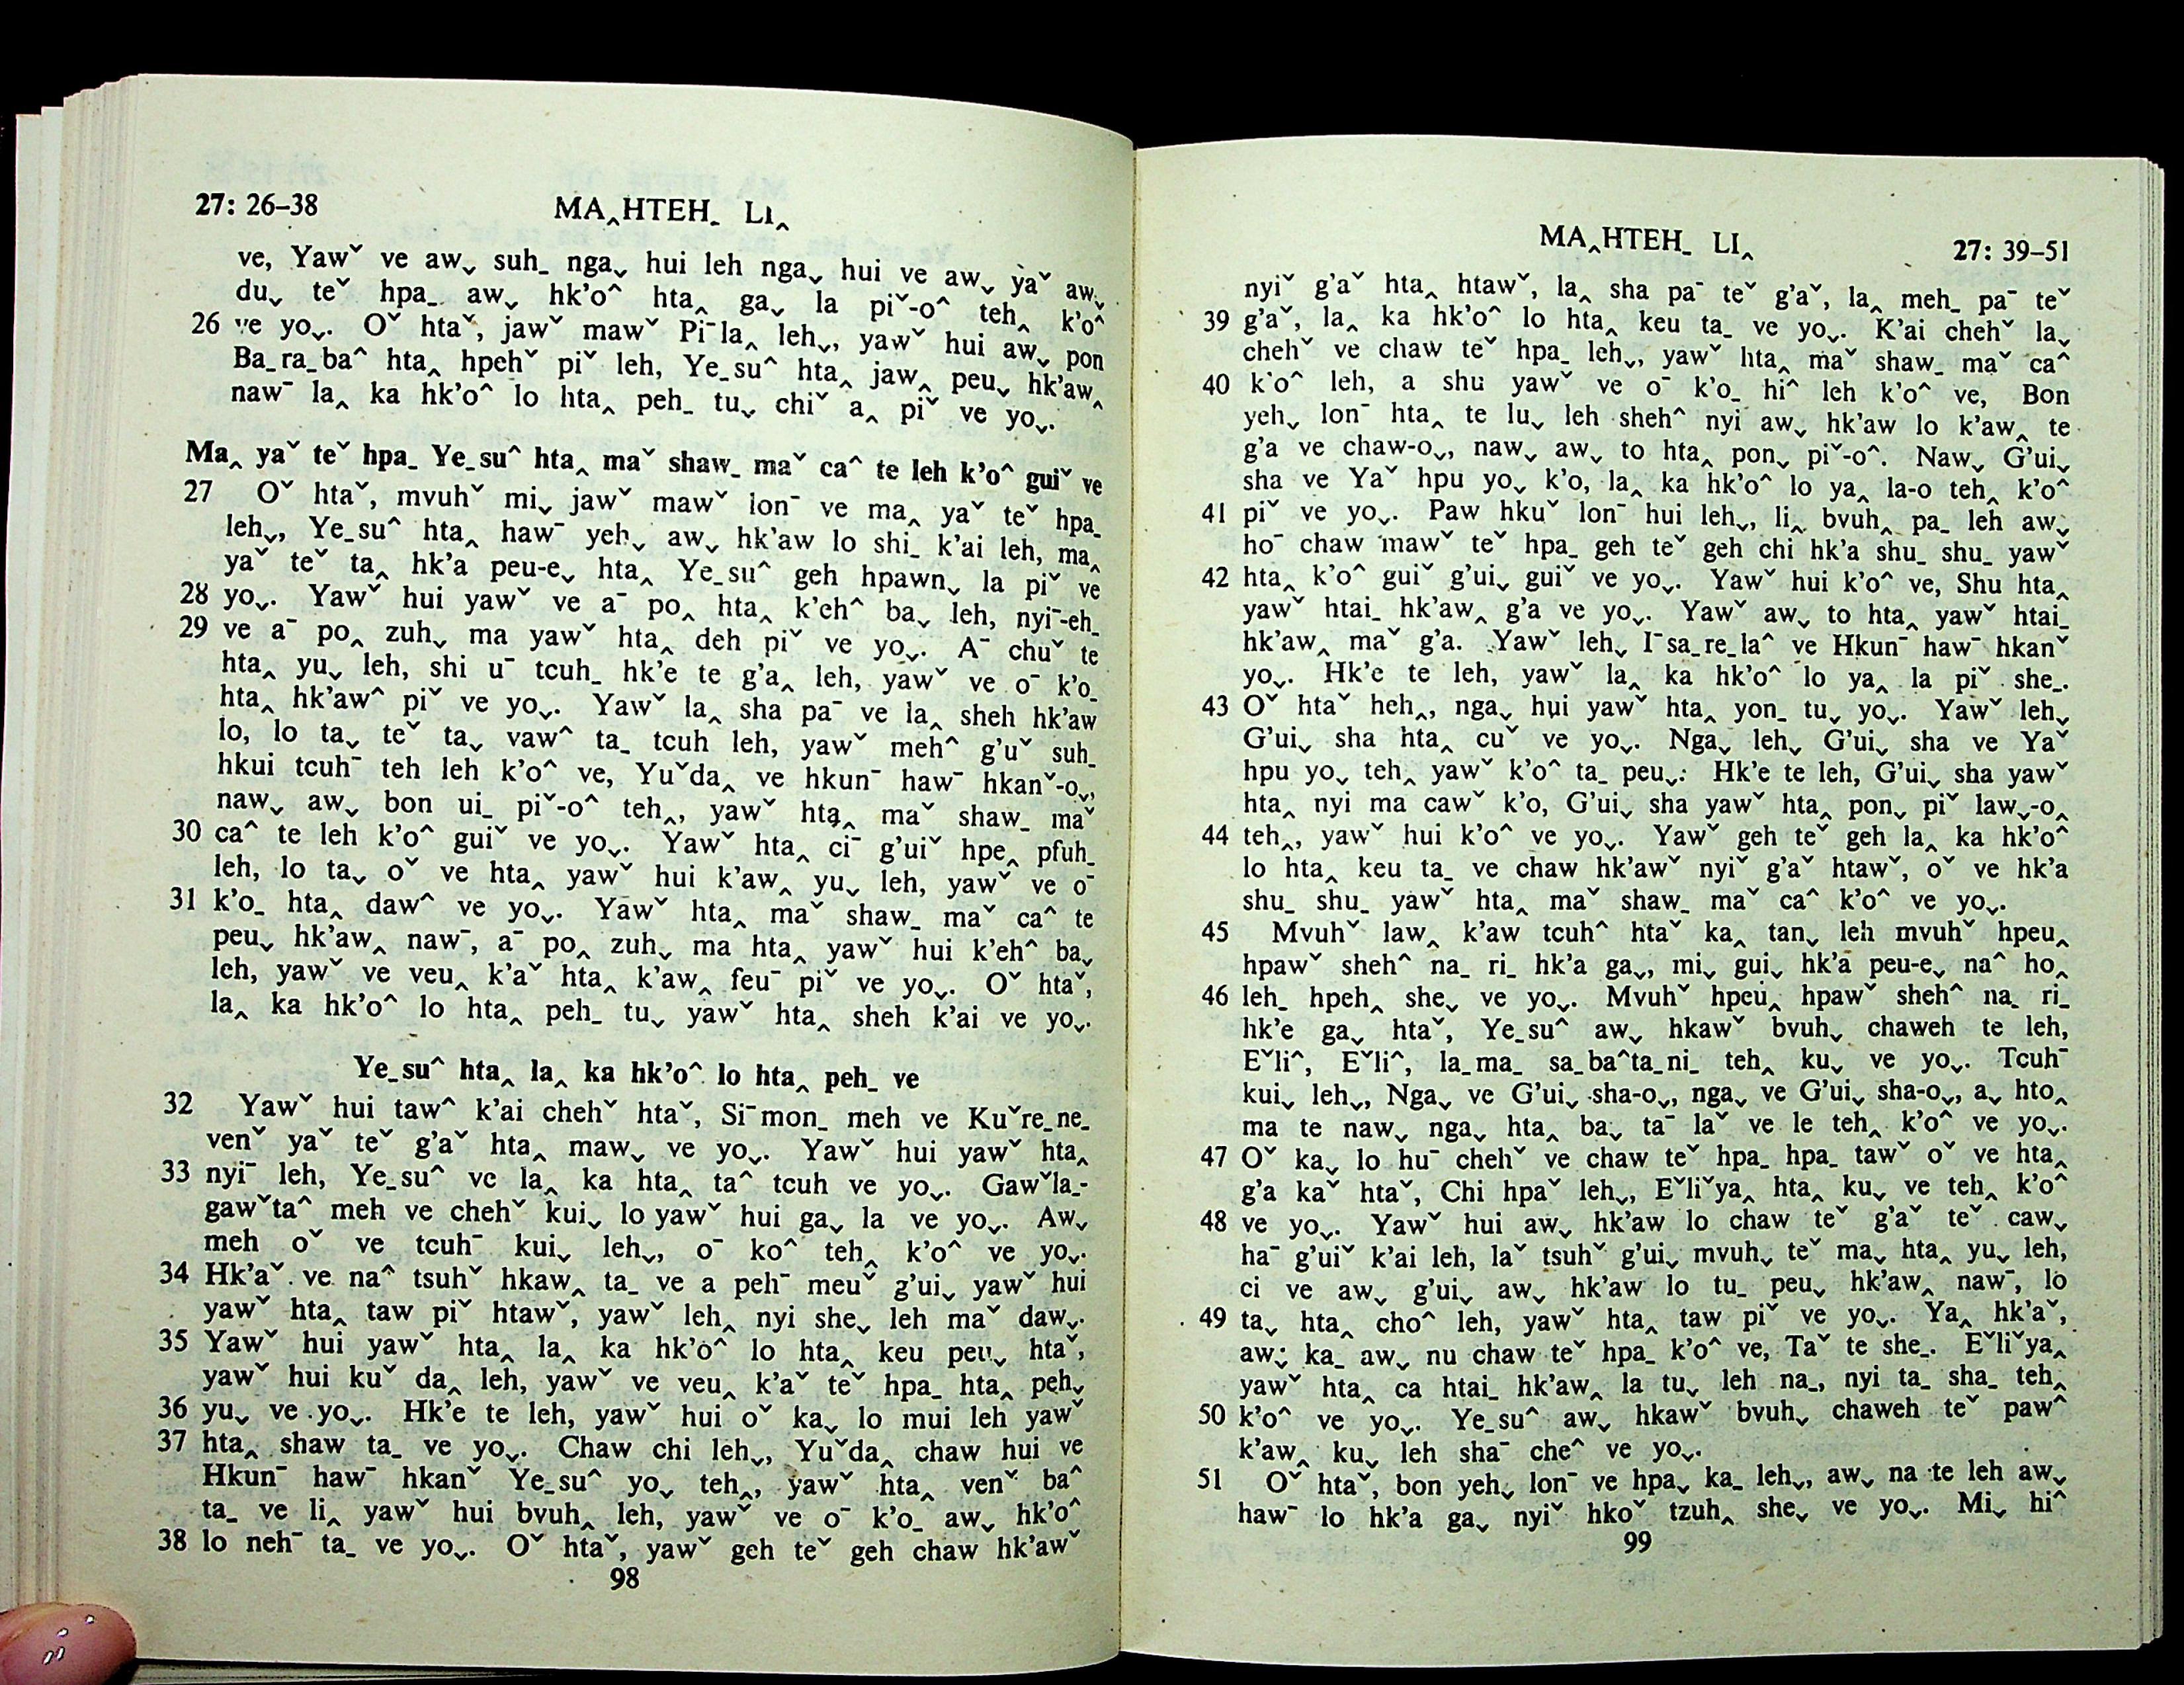 27: 26–38
MA‸HTEH˗ LI‸
ve, Yawˇ ve aw˯ suh˗ nga˯ hui leh nga˯ hui ve aw˯ yaˇ aw˯
du˯ teˇ hpa˗ aw˯ hk'o^ hta‸ ga˯ la piˇ-o^ teh‸ k'o^
26 ve yo˯. Oˇ htaˇ, jawˇ mawˇ Piˉla‸ leh˯, yawˇ hui aw˯ pon
Ba˗ra˗ba^ hta‸ hpehˇ piˇ leh, Ye˗su^ hta‸ jaw‸ peu˯ hk'aw‸
nawˉ la‸ ka hk'o^ lo hta‸ peh˗ tu˯ chiˇ a‸ piˇ ve yo˯.
Ma‸ yaˇ teˇ hpa˗ Ye˗su^ hta‸ maˇ shaw˗ maˇ ca^ te leh k'o^ guiˇ ve
27 Oˇ htaˇ, mvuhˇ mi˯ jawˇ mawˇ lonˉ ve ma‸ yaˇ teˇ hpa˗
leh˯, Ye˗su^ hta‸ hawˉ yeh˯ aw˯ hk'aw lo shi˗ k'ai leh, ma‸
yaˇ teˇ ta‸ hk'a peu-e˯ hta‸ Ye˗su^ geh hpawn˯ la piˇ ve
28 yo˯. Yawˇ hui yawˇ ve aˉ po‸ hta‸ k'eh^ ba˯ leh, nyiˉ-eh˗
29 ve aˉ po‸ zuh˯ ma yawˇ hta‸ deh piˇ ve yo˯. Aˉ chuˇ te
hta‸ yu˯ leh, shi uˉ tcuh˗ hk'e te g'a‸ leh, yawˇ ve oˉ k'o˗
hta‸ hk'aw^ piˇ ve yo˯. Yawˇ la‸ sha paˉ ve la‸ sheh hk'aw
lo, lo ta˯ teˇ ta˯ vaw^ ta˗ tcuh leh, yawˇ meh^ g'uˇ suh˗
hkui tcuhˉ teh leh k'o^ ve, Yuˇda‸ ve hkunˉ hawˉ hkanˇ-o˯,
naw˯ aw˯ bon ui˗ piˇ-o^ teh‸, yawˇ hta‸ maˇ shaw˗ maˇ
30 ca^ te leh k'o^ guiˇ ve yo˯. Yawˇ hta‸ ciˉ g'uiˇ hpe‸ pfuh˗
leh, lo ta˯ oˇ ve hta‸ yawˇ hui k'aw‸ yu˯ leh, yawˇ ve oˉ
31 k'o˗ hta‸ daw^ ve yo˯. Yawˇ hta‸ maˇ shaw˗ maˇ ca^ te
peu˯ hk'aw‸ nawˉ, aˉ po‸ zuh˯ ma hta‸ yawˇ hui k'eh^ ba˯
leh, yawˇ ve veu‸ k'aˇ hta‸ k'aw‸ feuˉ piˇ ve yo˯. Oˇ htaˇ,
la‸ ka hk'o^ lo hta‸ peh˗ tu˯ yawˇ hta‸ sheh k'ai ve yo˯.
Ye˗su^ hta‸ la‸ ka hk'o^ lo hta‸ peh˗ ve
32 Yawˇ hui taw^ k'ai chehˇ htaˇ, Siˉmon˗ meh ve Kuˇre˗ne˗
venˇ yaˇ teˇ g'aˇ hta‸ maw˯ ve yo˯. Yawˇ hui yawˇ hta‸
33 nyiˉ leh, Ye˗su^ ve la‸ ka hta‸ ta^ tcuh ve yo˯. Gawˇla˗-
gawˇta^ meh ve chehˇ kui˯ lo yawˇ hui ga˯ la ve yo˯. Aw˯
meh oˇ ve tcuhˉ kui˯ leh˯, oˉ ko^ teh‸ k'o^ ve yo˯.
34 Hk'aˇ ve na^ tsuhˇ hkaw‸ ta˗ ve a pehˉ meuˇ g'ui˯ yawˇ hui
yawˇ hta‸ taw piˇ htawˇ, yawˇ leh‸ nyi she˯ leh maˇ daw˯.
35 Yawˇ hui yawˇ hta‸ la‸ ka hk'o^ lo hta‸ keu peu˯ htaˇ,
yawˇ hui kuˇ da‸ leh, yawˇ ve veu‸ k'aˇ teˇ hpa˗ hta‸ peh˯
36 yu˯ ve yo˯. Hk'e te leh, yawˇ hui oˇ ka˯ lo mui leh yawˇ
37 hta‸ shaw ta˗ ve yo˯. Chaw chi leh˯, Yuˇda‸ chaw hui ve
Hkunˉ hawˉ hkanˇ Ye˗su^ yo˯ teh‸, yawˇ hta‸ venˇ ba^
ta˗ ve li‸ yawˇ hui bvuh‸ leh, yawˇ ve oˉ k'o˗ aw˯ hk'o^
38 lo nehˉ ta˗ ve yo˯. Oˇ htaˇ, yawˇ geh teˇ geh chaw hk'awˇ
98
MA‸HTEH˗ LI‸
27: 39–51
nyiˇ g'aˇ hta‸ htawˇ, la‸ sha paˉ teˇ g'aˇ, la‸ meh˗ paˉ teˇ
39 g'aˇ, la‸ ka hk'o^ lo hta‸ keu ta˗ ve yo˯. K'ai chehˇ la˯
chehˇ ve chaw teˇ hpa˗ leh˯, yawˇ hta‸ maˇ shaw˗ maˇ ca^
40 k'o^ leh, a shu yawˇ ve oˉ k'o˗ hi^ leh k'o^ ve, Bon
yeh˯ lonˉ hta‸ te lu˯ leh sheh^ nyi aw˯ hk'aw lo k'aw‸ te
g'a ve chaw-o˯, naw˯ aw˯ to hta‸ pon˯ piˇ-o^. Naw˯ G'ui˯
sha ve Yaˇ hpu yo˯ k'o, la‸ ka hk'o^ lo ya‸ la-o teh‸ k'o^
41 piˇ ve yo˯. Paw hkuˇ lonˉ hui leh˯, li‸ bvuh‸ pa˗ leh aw˯
hoˉ chaw mawˇ teˇ hpa˗ geh teˇ geh chi hk'a shu˗ shu˗ yawˇ
42 hta‸ k'o^ guiˇ g'ui˯ guiˇ ve yo˯. Yawˇ hui k'o^ ve, Shu hta‸
yawˇ htai˗ hk'aw‸ g'a ve yo˯. Yawˇ aw˯ to hta‸ yawˇ htai˗
hk'aw‸ maˇ g'a. Yawˇ leh˯ Iˉsa˗re˗la^ ve Hkunˉ hawˉ hkanˇ
yo˯. Hk'e te leh, yawˇ la‸ ka hk'o^ lo ya‸ la piˇ she˗.
43 Oˇ htaˇ heh‸, nga˯ hui yawˇ hta‸ yon˗ tu˯ yo˯. Yawˇ leh˯
G'ui˯ sha hta‸ cuˇ ve yo˯. Nga˯ leh˯ G'ui˯ sha ve Yaˇ
hpu yo˯ teh‸ yawˇ k'o^ ta˗ peu˯. Hk'e te leh, G'ui˯ sha yawˇ
hta‸ nyi ma cawˇ k'o, G'ui˯ sha yawˇ hta‸ pon˯ piˇ law˯-o‸
44 teh‸, yawˇ hui k'o^ ve yo˯. Yawˇ geh teˇ geh la‸ ka hk'o^
lo hta‸ keu ta˗ ve chaw hk'awˇ nyiˇ g'aˇ htawˇ, oˇ ve hk'a
shu˗ shu˗ yawˇ hta‸ maˇ shaw˗ maˇ ca^ k'o^ ve yo˯.
45 Mvuhˇ law‸ k'aw tcuh^ htaˇ ka‸ tan˯ leh mvuhˇ hpeu‸
hpawˇ sheh^ na˗ ri˗ hk'a ga˯, mi˯ gui˯ hk'a peu-e˯ na^ ho‸
46 leh˗ hpeh‸ she˯ ve yo˯. Mvuhˇ hpeu‸ hpawˇ sheh^ na˗ ri˗
hk'e ga˯ htaˇ, Ye˗su^ aw˯ hkawˇ bvuh˯ chaweh te leh,
Eˇli^, Eˇli^, la˗ma˗ sa˗ba^ta˗ni˗ teh‸ ku˯ ve yo˯. Tcuhˉ
kui˯ leh˯, Nga˯ ve G'ui˯ sha-o˯, nga˯ ve G'ui˯ sha-o˯, a˯ hto‸
ma te naw˯ nga˯ hta‸ ba˯ taˉ laˇ ve le teh‸ k'o^ ve yo˯.
47 Oˇ ka˯ lo huˉ chehˇ ve chaw teˇ hpa˗ hpa˗ tawˇ oˇ ve hta‸
g'a kaˇ htaˇ, Chi hpaˇ leh˯, Eˇliˇya‸ hta‸ ku˯ ve teh‸ k'o^
48 ve yo˯. Yawˇ hui aw˯ hk'aw lo chaw teˇ g'aˇ teˇ caw˯
haˉ g'uiˇ k'ai leh, laˇ tsuhˇ g'ui˯ mvuh˯ teˇ ma˯ hta‸ yu˯ leh,
ci ve aw˯ g'ui˯ aw˯ hk'aw lo tu˗ peu˯ hk'aw‸ nawˉ, lo
49 ta˯ hta‸ cho^ leh, yawˇ hta‸ taw piˇ ve yo˯. Ya‸ hk'aˇ,
aw˯ ka˗ aw˯ nu chaw teˇ hpa˗ k'o^ ve, Taˇ te she˗. Eˇliˇya‸
yawˇ hta‸ ca htai˗ hk'aw‸ la tu˯ leh na˗, nyi ta˗ sha˗ teh‸
50 k'o^ ve yo˯. Ye˗su^ aw˯ hkawˇ bvuh˯ chaweh teˇ paw^
k'aw‸ ku˯ leh shaˉ che^ ve yo˯.
51 Oˇ htaˇ, bon yeh˯ lonˉ ve hpa‸ ka˗ leh˯, aw˯ na te leh aw˯
hawˉ lo hk'a ga˯ nyiˇ hkoˇ tzuh‸ she˯ ve yo˯. Mi˯ hi^
99